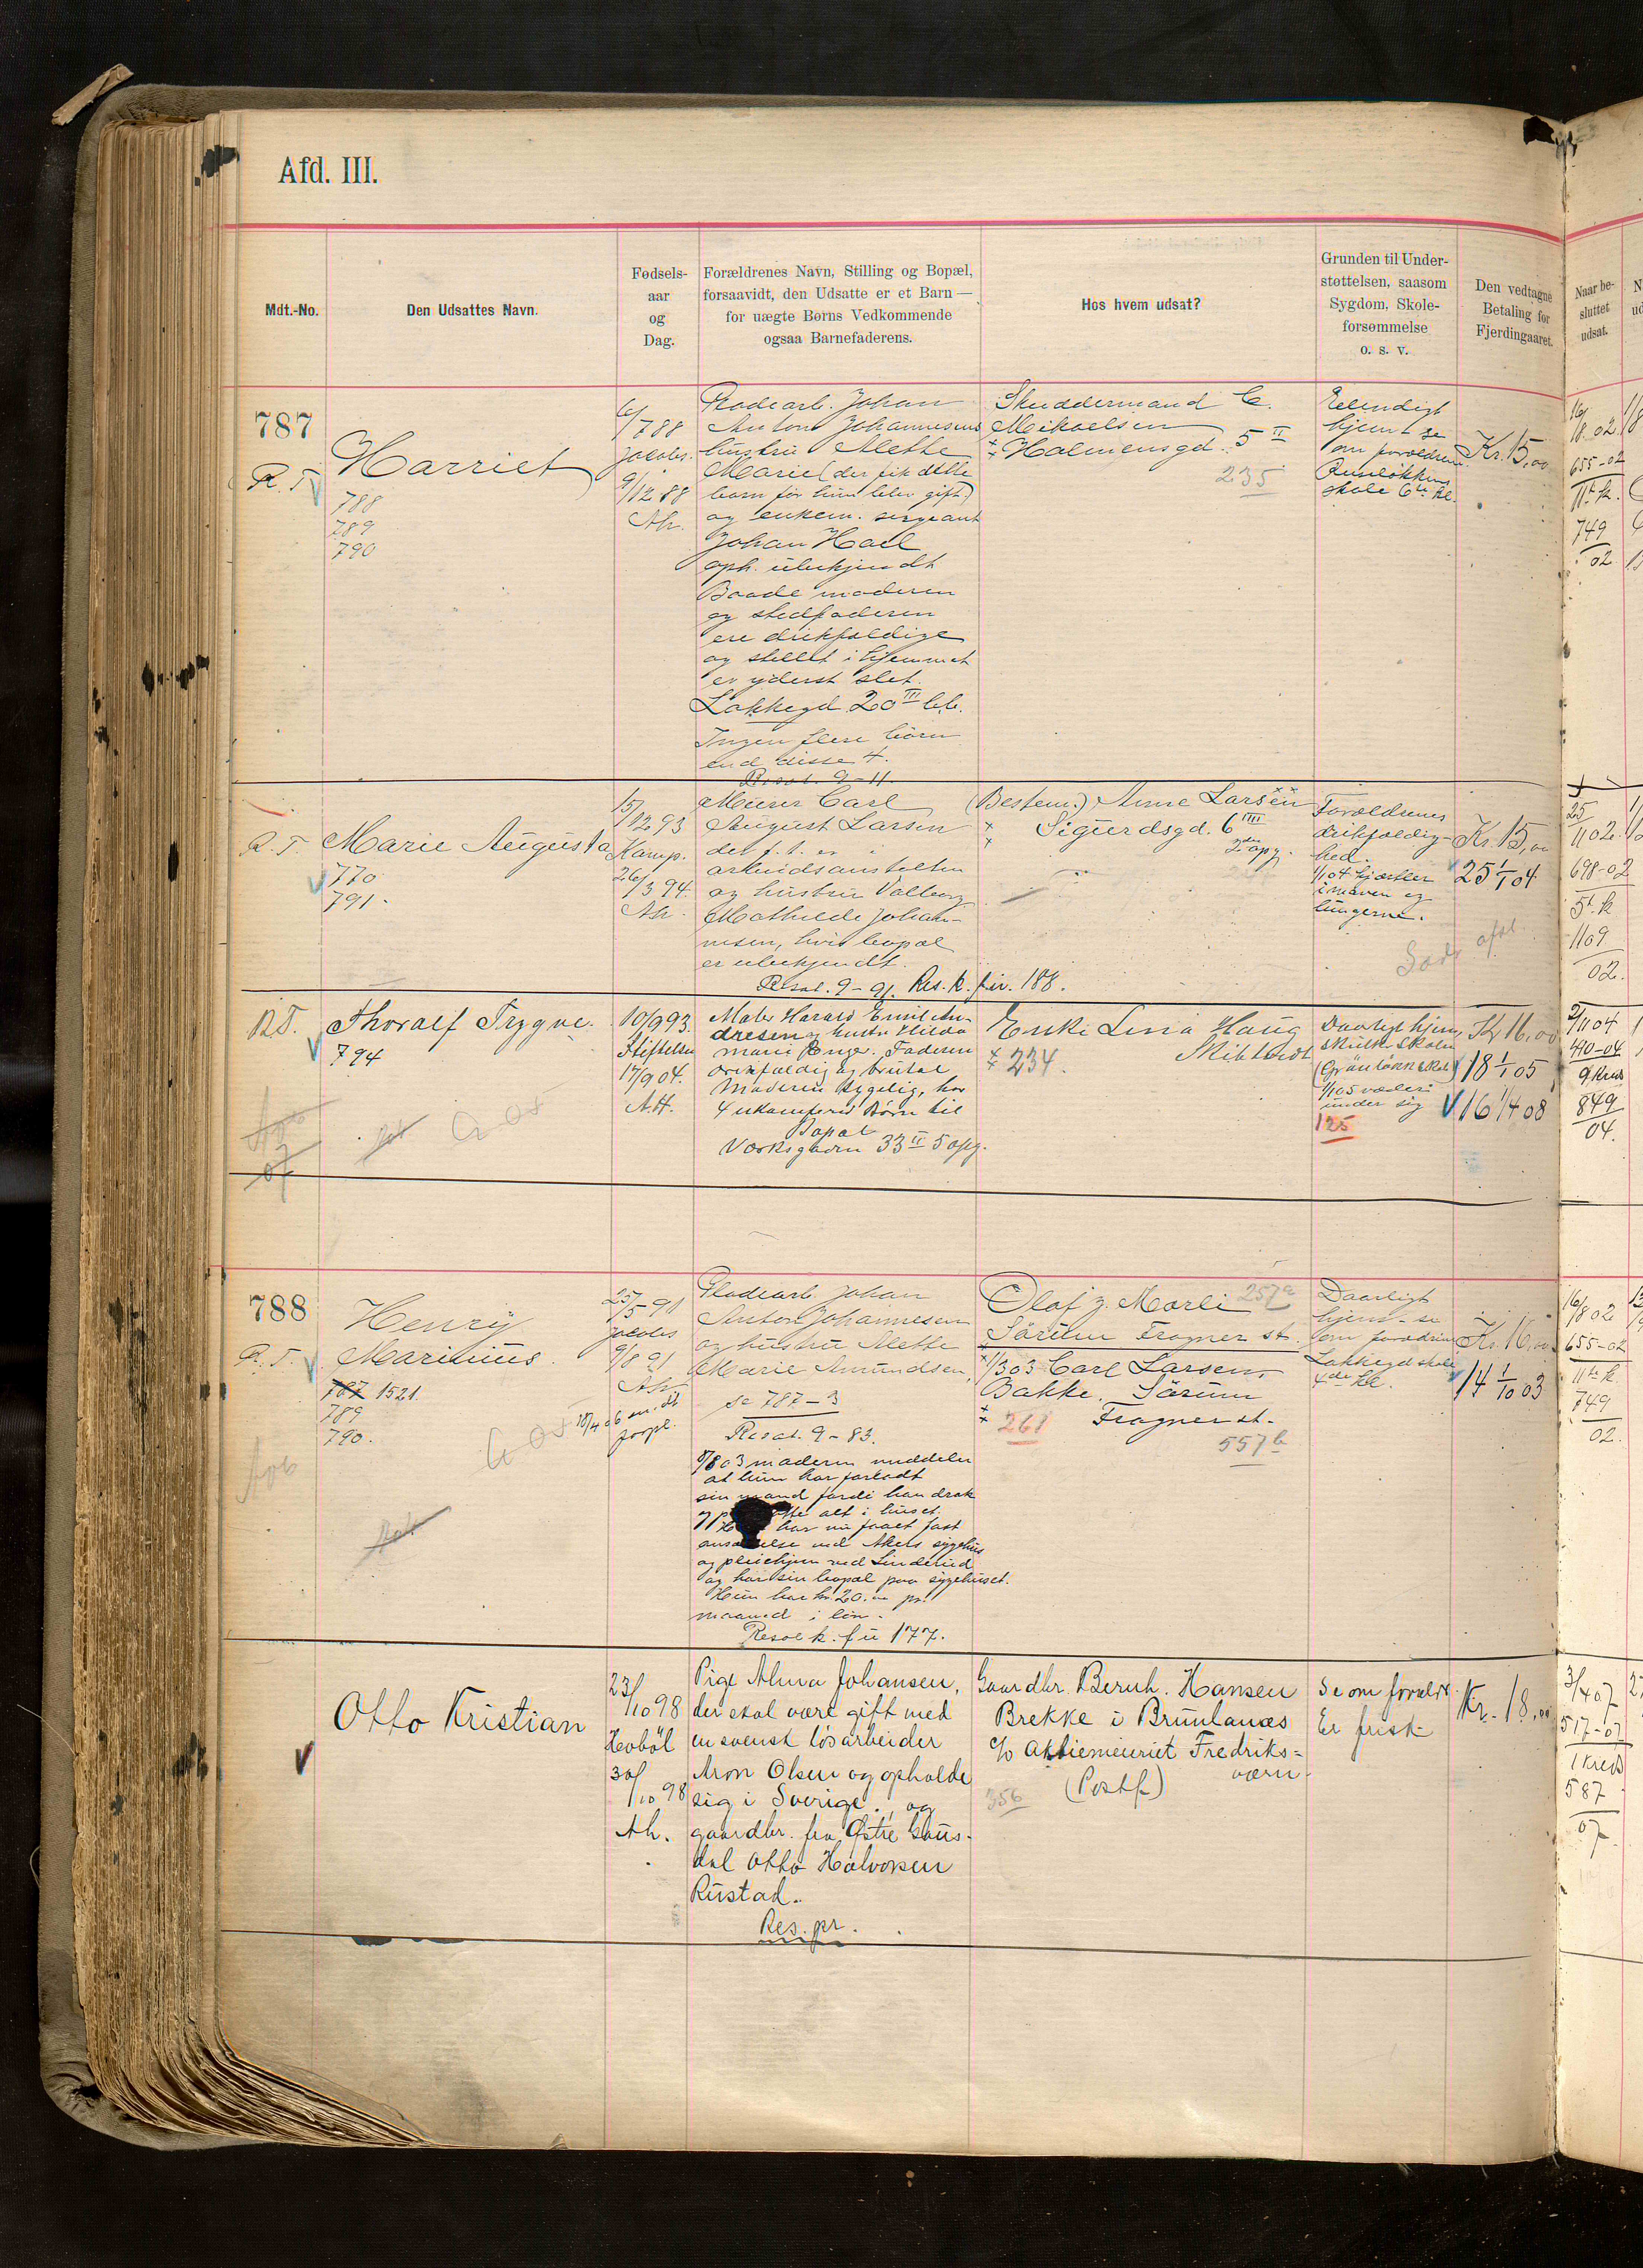 Afd. III.
Mdt.-No.
Den Udsattes Navn.
Fødsels-
aar
og
Dag.
Forældrenes Navn, Stilling og Bopæl,
forsaavidt, den Udsatte er et Barn —
for uægte Børns Vedkommende
ogsaa Barnefaderens.
Hos hvem udsat?
Grunden til Under-
støttelsen, saasom
Sygdom, Skole-
forsømmelse
o. s. v.
Den vedtagne
Betaling for
Fjerdingaaret.
Naar be-
sluttet
udsat.
787
R. T.
Harriet
788
789
790
6/788
Jacobs.
9/12 88
Ah.
Johan
Anton Johannesens
hustru Alethe
Marie (der fik dette
barn før hun blev gift)
og enkem. sergeant
Johan Hoel
oph. ubekjendt
Baade moderen
og stedfaderen
ere drikfældige
og stellet i hjemmet
er yderst slet.
Lakkegd 20 III
Ingen flere børn
end disse 4.
Resol. 9-11.
Skuddermand C.
Mikaelsen
Holmensgd. 5 II
235
Eelendigt
hjem - se
om forældrene
Ruseløkkens
skole 6te kl.
Kr. 15,00
16/8.02
655-02
11te k.
749
02
R. T.
Marie Augusta
770
791.
15/12 93
Kamp.
26/3 94.
Ah.
Murer Carl
August Larsen
der f. t. er i
arbeidsanstalten
og hustru Valborg
Mathilde Johan-
nesen, hvis bopæl
er ubekjendt.
Resol. 9-91. Res. k. fu. 188.
(Bestem.) Anne Larsen
Sigurdsgd. 6 III
2den opg.
Forældrenes
drikfældig-
hed.
1/1 04 kjertler
i maven og
lungerne.
Kr. 15,00
25 1/1 04
25/11 02.
698-02
5t. k
1109
02.
R.T.
Thoralf Trygve.
794
10/9 93.
Stiftelsen
17/9 04.
A.H.
Maler Harald Emil An-
dresen og hustr Hilda
Marie Enger. Faderen
drikfældig og brutal
Moderen sygelig, har
4 ukonfirm Børn til
Bopæl
Værksgaden 33 II 5 opg.
Enke Lina Haug
Skibtvedt
234.
Daarligt hjem
skulker skolen
(Grünløkk skole)
1/1 05 væder
under sig
125
Kr 16,00
18 1/1 05
16 1/4 08
2/11 04
410-04
9 Kreds
849
04.
788
R. T.
Henry
Marinius
787 1521.
789
790.
25/5 91
Jacobs
9/8 91
Ah
18/4 06 m. dt
forpl.
Johan
Anton Johannesen
og hustru Alethe
Marie Amundsen,
se 787-3
Resol. 9-83.
5/8 03 moderen meddeler
at hun har forladt
sin mand fordi han drak
alt i huset.
har nu faaet fast
ansættelse ved Akers sygehus
og pleiehjem ved Linderud
og har sin bopæl paa sygehuset.
Hun har kr. 20.00 pr.
maaned i løn.
Resol k. fu 177.
Olaf J. Marli 257a
Sørum Fragner st.
1/3 03 Carl Larsen,
Bakke. Sørum
261 Fragner st.
557b
Daarligt
hjem - se
om forældrene
Lakkegd skole
4de kl.
Kr. 16,00
14 1/10 03
16/8 02
655-02
11te k.
749
02.
Otto Kristian
23/10 98
Hobøl
30/10 98
Ah.
Pige Alma Johansen,
der skal være gift med
en svensk løsarbeider
Aron Olsen og opholde
sig i Sverige., og
gaardbr. fra Østre Gaus-
dal Otto Halvorsen
Rustad.
Res. pr.
Gaardbr. Bernh. Hansen
Brekke i Brunlanæs
c/o Aktiemeieriet Fredriks-
værn
(Postf)
356
Se om foreldr.
Er frisk
Kr. 18,00
3/4 07
517-07
1 Kreds
587
07